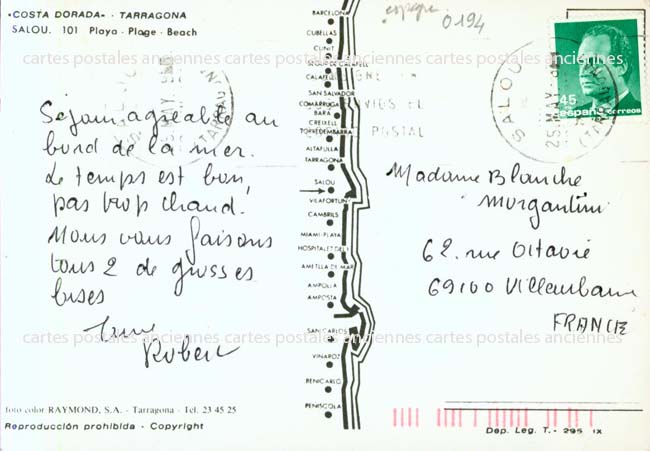 «COSTA DORADA» - TARRAGONA
SALOU. 101 Playa - Plage - Beach
Séjour agréable au
bord de la mer.
Le temps est bon,
pas trop chaud.
Nous vous faisons
tous 2 de grosses
bises
Robert
foto color RAYMOND, S.A. - Tarragona - Tel. 23 45 25
Reproducción prohibida - Copyright
BARCELONA
CUBELLAS
CUNIT
SEGUR DE CALAFELL
CALAFELL
SAN SALVADOR
COMARRUGA
BARA
CREIXELL
TORREDEMBARRA
ALTAFULLA
TARRAGONA
SALOU
VILAFORTUNY
CAMBRILS
MIAMI-PLAYA
HOSPITALET DEL I.
AMETLLA DE MAR
AMPOLLA
AMPOSTA
SAN CARLOS
VINAROZ
BENICARLO
PEÑISCOLA
espagne
0194
45
españa correos
SALOU
25 MAY
POSTAL
Madame Blanche
Morgantini
62. rue Octavie
69100 Villeurbanne
FRANCE
Dep. Leg. T. - 295 IX
cartes postales anciennes cartes postales anciennes cartes postales anciennes
cartes postales anciennes cartes postales anciennes cartes postales anciennes